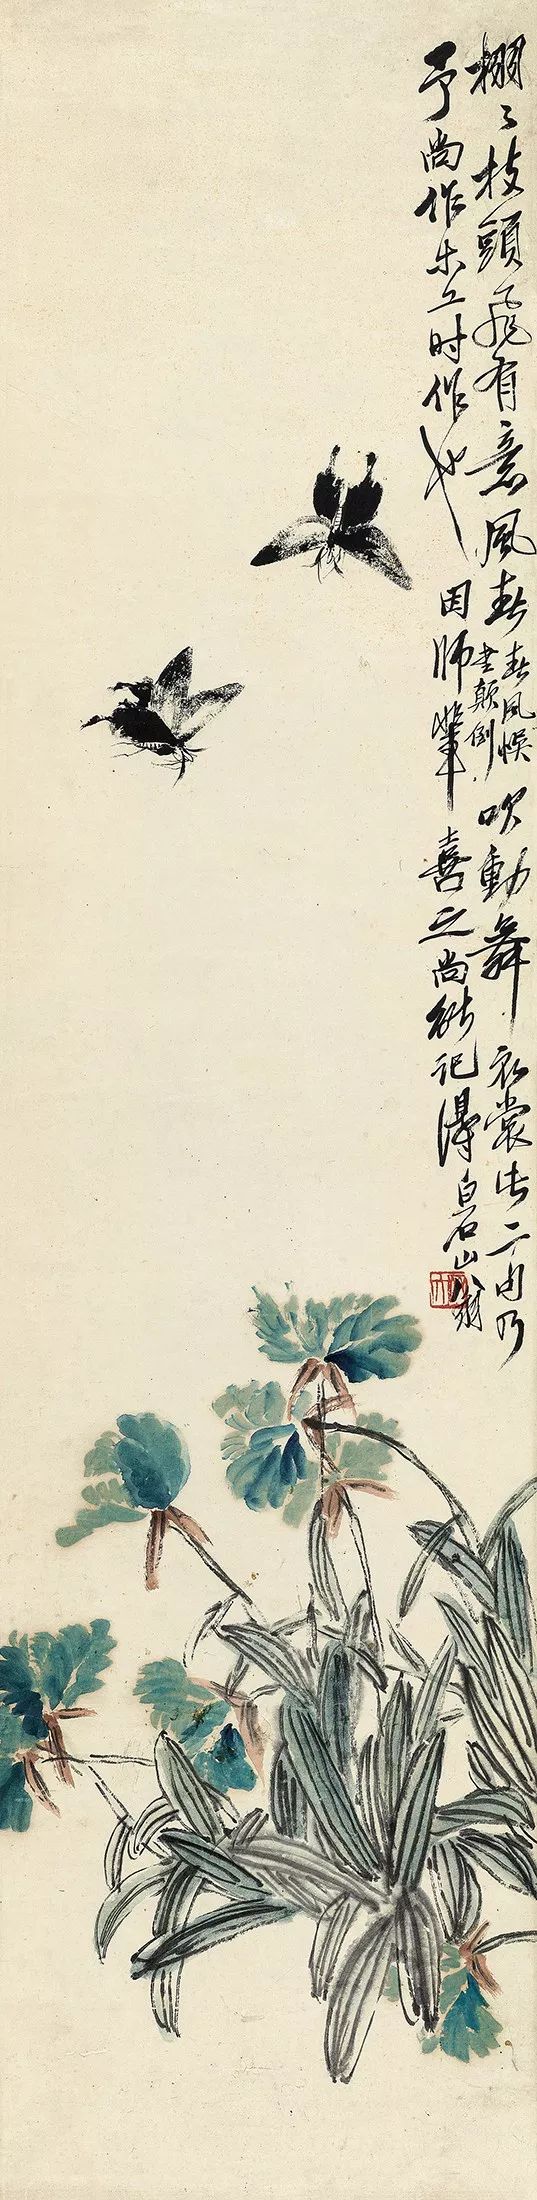 栩〻枝頭飛有意風春
春風悞
書顛倒
吹動舞衣裳此二句乃
予尚作木工时作也因師輩喜之尚能記得白石山翁